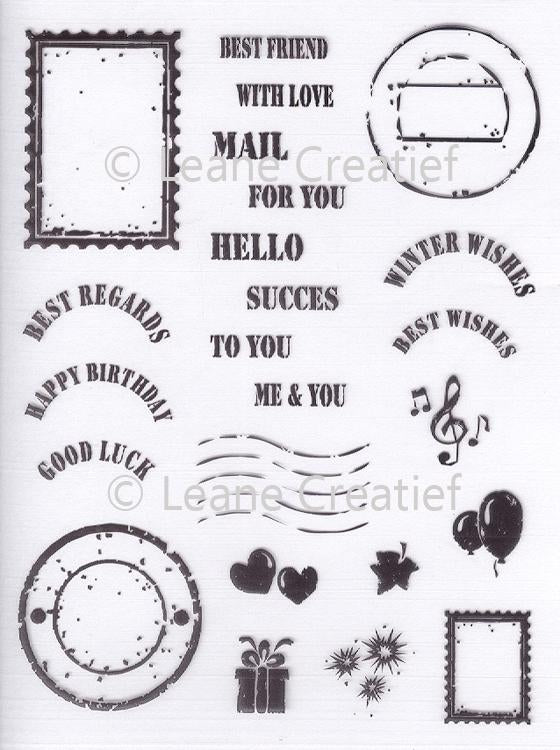 BEST FRIEND
WITH LOVE
MAIL
© Leane Creatief
FOR YOU
HELLO
SUCCES
TO YOU
ME & YOU
WINTER WISHES
BEST WISHES
BEST REGARDS
HAPPY BIRTHDAY
GOOD LUCK
© Leane Creatief